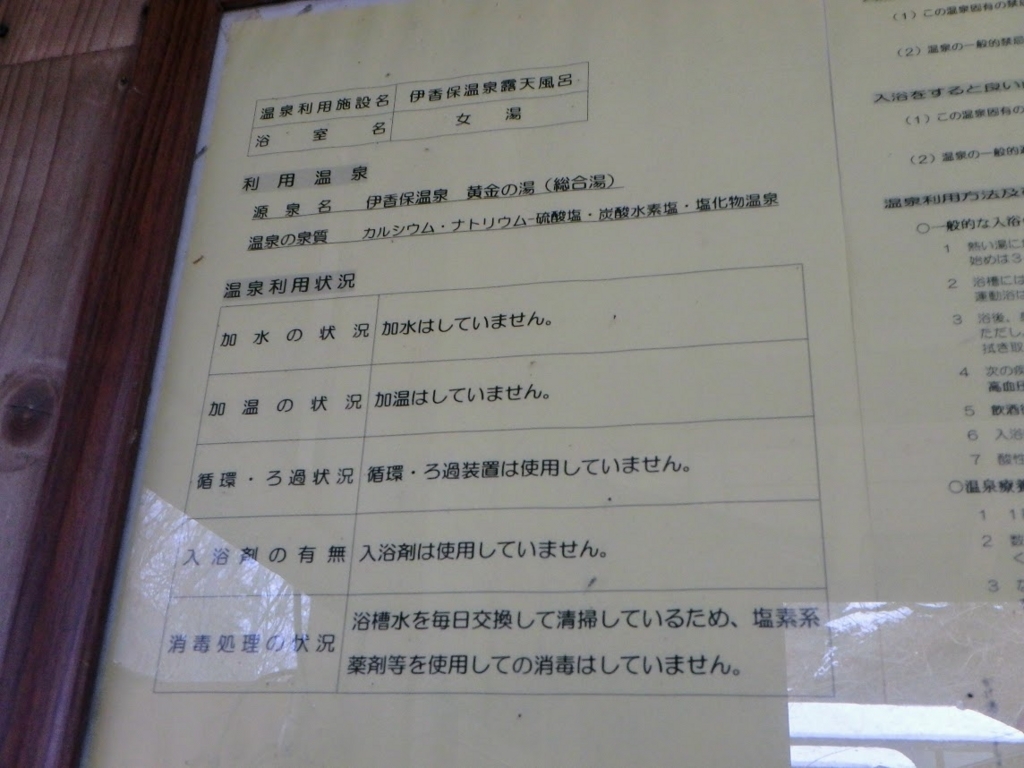 温泉利用施設名 伊香保温泉露天風呂
浴室名 女湯
利用温泉
源泉名 伊香保温泉 黄金の湯(総合湯)
温泉の泉質 カルシウム・ナトリウム-硫酸塩・炭酸水素塩・塩化物温泉
温泉利用状況
加水の状況 加水はしていません。
加温の状況 加温はしていません。
循環・ろ過状況 循環・ろ過装置は使用していません。
入浴剤の有無 入浴剤は使用していません。
消毒処理の状況 浴槽水を毎日交換して清掃しているため、塩素系
薬剤等を使用しての消毒はしていません。
(1)この温泉固有の禁忌
(2)温泉の一般的禁忌
入浴をすると良い
(1)この温泉固有の
(2)温泉の一般的
温泉利用方法及
○一般的な入浴
1 熱い湯に
始めは3
2 浴槽には
運動浴は
3 浴後、
ただし、
拭き取
4 次の疾
高血圧
5 飲酒
6 入浴
7 酸性
○温泉療養
1 1
2 数
3